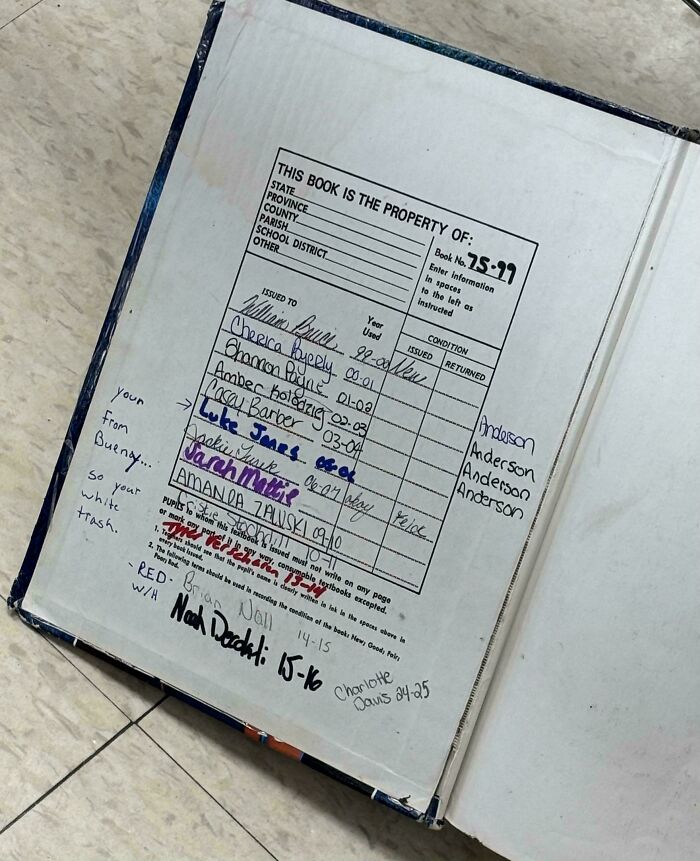 THIS BOOK IS THE PROPERTY OF:
STATE
PROVINCE
COUNTY
PARISH
SCHOOL DISTRICT
OTHER
Book No. 75-99
Enter information
in spaces
to the left as
instructed
ISSUED TO
Year
Used
CONDITION
ISSUED
RETURNED
William 99-00 New
Cherica Byerly 00-01
Shannon Payne 01-02
Amber Kolodzig 02-03
Casey Barber 03-04
→ Luke Jones 05-06
Jackie 06-07 okay
Sarah Mattie
AMANDA ZAWSKI 09-10
10-11
Anderson
Anderson
Anderson
Anderson
PUPILS to whom this textbook is issued must not write on any page
or mark any part of it in any way, consumable textbooks excepted.
1. Teachers should see that the pupil's name is clearly written in ink in the spaces above in
every book issued.
2. The following terms should be used in recording the condition of the book: New; Good; Fair;
Poor; Bad.
Tyler 13-14
Brian Nall 14-15
Noah 15-16
Charlotte
Davis 24-25
your
From
Buena...
so your
white
trash.
- RED -
W/H